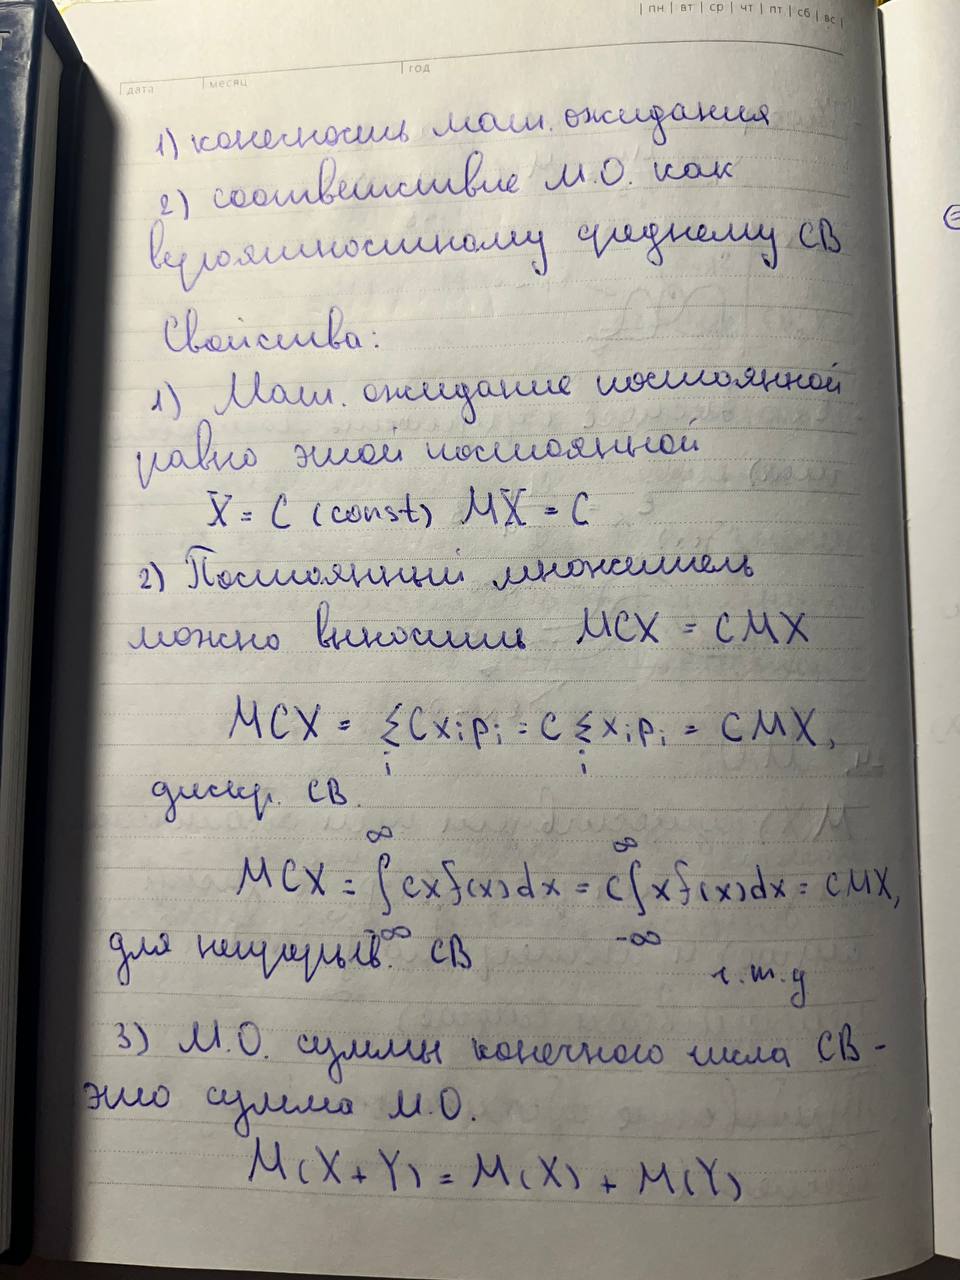 пн вт ср чт пт сб вс
дата месяц год
1) конечность мат. ожидания
2) соответствие М.О. как
вероятностному среднему СВ
Свойства:
1) Мат. ожидание постоянной
равно этой постоянной
X = C (const) MX = C
2) Постоянный множитель
можно выносить MCX = CMX
MCX = Σ Cxᵢpᵢ = C Σ xᵢpᵢ = CMX,
i i
дискр. СВ.
∞ ∞
MCX = ∫ cxf(x)dx = C∫xf(x)dx = CMX,
-∞ -∞
для непрерывн. СВ
ч.т.д
3) М.О. суммы конечного числа СВ -
это сумма М.О.
M(X+Y) = M(X) + M(Y)